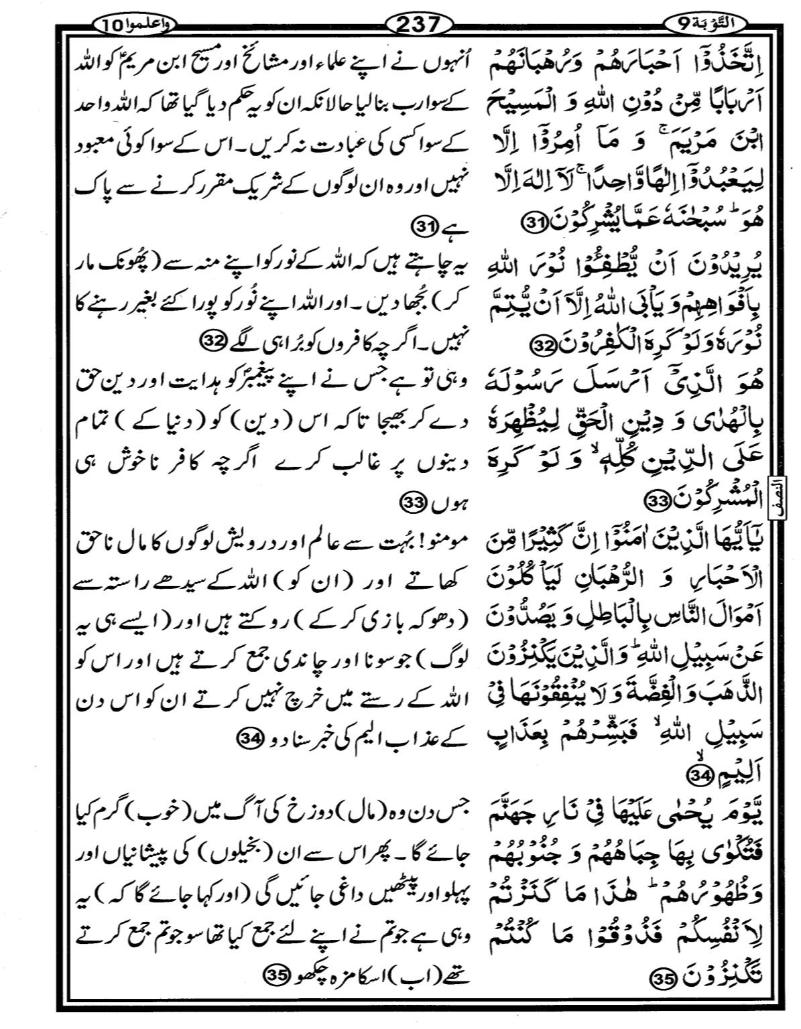 التَّوْبَة 9
237
واعلموا 10
اِتَّخَذُوْۤا اَحْبَارَهُمْ وَرُهْبَانَهُمْ
اَرْبَابًا مِّنْ دُوْنِ اللّٰهِ وَ الْمَسِيْحَ
ابْنَ مَرْيَمَ ۚ وَ مَاۤ اُمِرُوْۤا اِلَّا
لِيَعْبُدُوْۤا اِلٰهًا وَّاحِدًا ۚ لَاۤ اِلٰهَ اِلَّا
هُوَ ؕ سُبْحٰنَهٗ عَمَّا يُشْرِكُوْنَ 31
يُرِيْدُوْنَ اَنْ يُّطْفِـُٔوْا نُوْرَ اللّٰهِ
بِاَفْوَاهِهِمْ وَ يَاْبَى اللّٰهُ اِلَّاۤ اَنْ يُّتِمَّ
نُوْرَهٗ وَ لَوْ كَرِهَ الْكٰفِرُوْنَ 32
هُوَ الَّذِيْۤ اَرْسَلَ رَسُوْلَهٗ
بِالْهُدٰى وَ دِيْنِ الْحَقِّ لِيُظْهِرَهٗ
عَلَى الدِّيْنِ كُلِّهٖ ۙ وَ لَوْ كَرِهَ
الْمُشْرِكُوْنَ 33
يٰۤاَيُّهَا الَّذِيْنَ اٰمَنُوْۤا اِنَّ كَثِيْرًا مِّنَ
الْاَحْبَارِ وَ الرُّهْبَانِ لَيَاْكُلُوْنَ
اَمْوَالَ النَّاسِ بِالْبَاطِلِ وَ يَصُدُّوْنَ
عَنْ سَبِيْلِ اللّٰهِ ؕ وَ الَّذِيْنَ يَكْنِزُوْنَ
الذَّهَبَ وَ الْفِضَّةَ وَ لَا يُنْفِقُوْنَهَا فِيْ
سَبِيْلِ اللّٰهِ ۙ فَبَشِّرْهُمْ بِعَذَابٍ
اَلِيْمٍ ۙ 34
يَّوْمَ يُحْمٰى عَلَيْهَا فِيْ نَارِ جَهَنَّمَ
فَتُكْوٰى بِهَا جِبَاهُهُمْ وَ جُنُوْبُهُمْ
وَ ظُهُوْرُهُمْ ؕ هٰذَا مَا كَنَزْتُمْ
لِاَنْفُسِكُمْ فَذُوْقُوْا مَا كُنْتُمْ
تَكْنِزُوْنَ 35
النصف
اُنہوں نے اپنے علماء اور مشائخ اور مسیح ابن مریمؑ کو اللہ
کے سوا رب بنالیا حالانکہ ان کو یہ حکم دیا گیا تھا کہ اللہ واحد
کے سوا کسی کی عبادت نہ کریں۔ اس کے سوا کوئی معبود
نہیں اور وہ ان لوگوں کے شریک مقرر کرنے سے پاک
ہے 31
یہ چاہتے ہیں کہ اللہ کے نور کو اپنے منہ سے (پُھونک مار
کر) بُجھا دیں۔ اور اللہ اپنے نُور کو پورا کئے بغیر رہنے کا
نہیں۔ اگرچہ کافروں کو بُرا ہی لگے 32
وہی تو ہے جس نے اپنے پیغمبرؐ کو ہدایت اور دین حق
دے کر بھیجا تاکہ اس (دین) کو (دنیا کے) تمام
دینوں پر غالب کرے اگرچہ کافر ناخوش ہی
ہوں 33
مومنو! بُہت سے عالم اور درویش لوگوں کا مال ناحق
کھاتے اور (ان کو) اللہ کے سیدھے راستہ سے
(دھوکہ بازی کر کے) روکتے ہیں اور (ایسے ہی یہ
لوگ) جو سونا اور چاندی جمع کرتے ہیں اور اس کو
اللہ کے رستے میں خرچ نہیں کرتے ان کو اس دن
کے عذاب الیم کی خبر سنا دو 34
جس دن وہ (مال) دوزخ کی آگ میں (خوب) گرم کیا
جائے گا۔ پھر اس سے ان (بخیلوں) کی پیشانیاں اور
پہلو اور پیٹھیں داغی جائیں گی (اور کہا جائے گا کہ) یہ
وہی ہے جو تم نے اپنے لئے جمع کیا تھا سو جو تم جمع کرتے
تھے (اب) اسکا مزہ چکھو 35